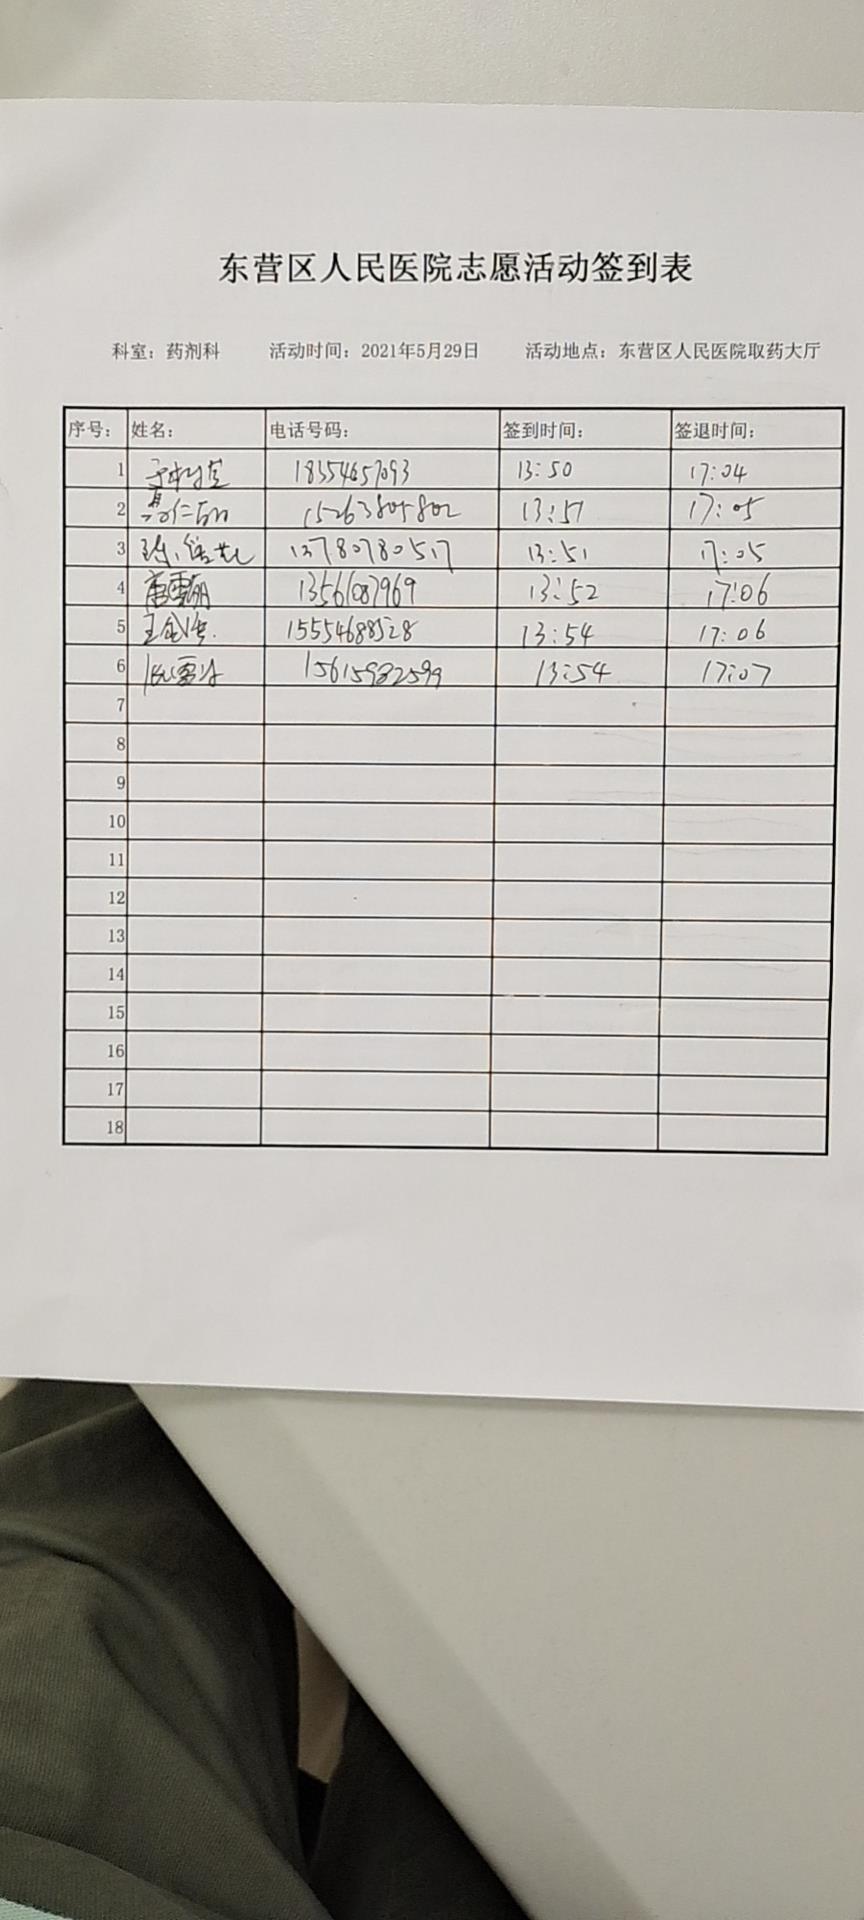 东营区人民医院志愿活动签到表
科室：药剂科 活动时间：2021年5月29日 活动地点：东营区人民医院取药大厅
序号： 姓名： 电话号码： 签到时间： 签退时间：
1 18354657093 13:50 17:04
2 15263805802 13:51 17:05
3 13780780517 13:51 17:05
4 13561087969 13:52 17:06
5 15554688528 13:54 17:06
6 15615982599 13:54 17:07
7
8
9
10
11
12
13
14
15
16
17
18